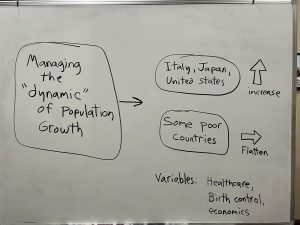 Managing
the
"dynamic"
of Population
Growth
Italy, Japan,
United states
increase
Some poor
Countries
Flatten
Variables: Healthcare,
Birth control,
economics